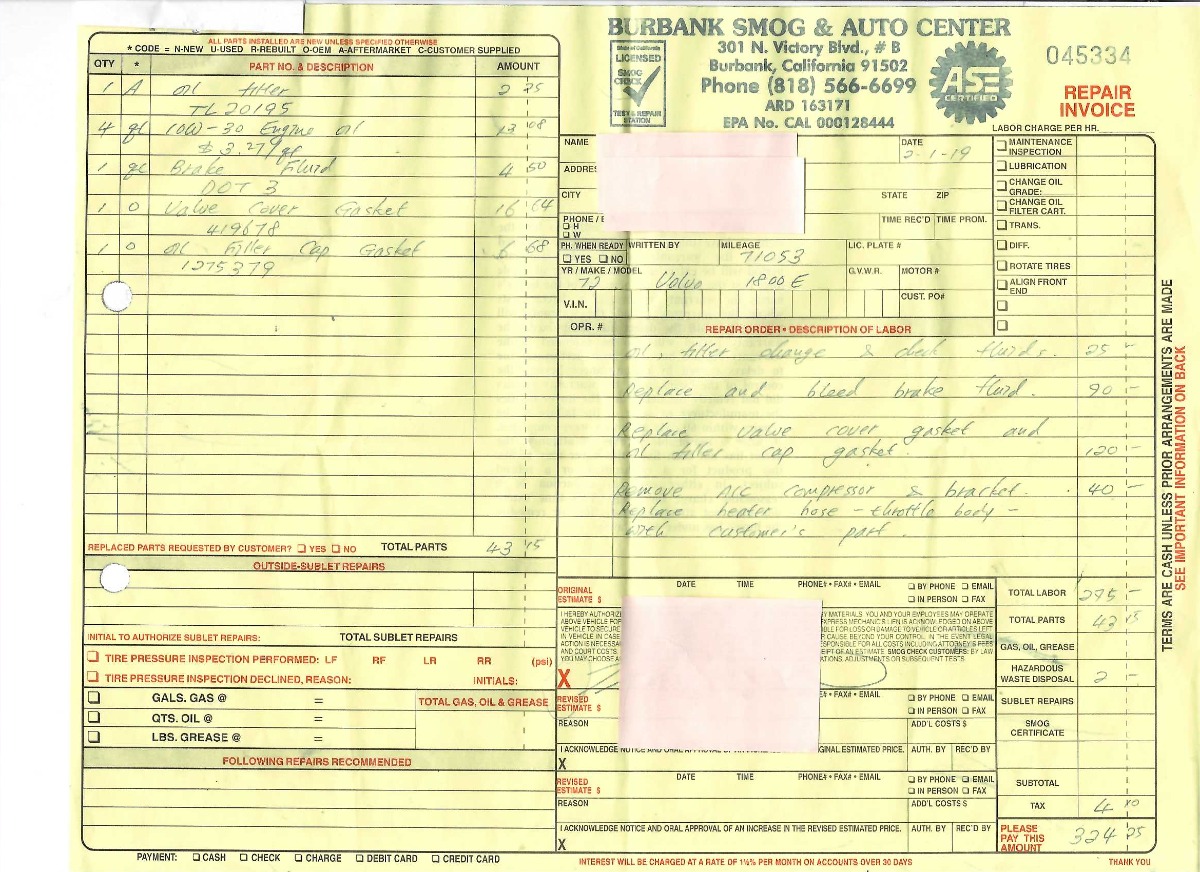 ALL PARTS INSTALLED ARE NEW UNLESS SPECIFIED OTHERWISE
* CODE = N-NEW U-USED R-REBUILT O-OEM A-AFTERMARKET C-CUSTOMER SUPPLIED
QTY * PART NO. & DESCRIPTION AMOUNT
1 A oil filter 2 25
TL 20195
4 qt 10W-30 Engine oil 13 08
$3.27/qt
1 qt Brake Fluid 4 50
DOT 3
1 O Valve Cover Gasket 16 64
419678
1 O oil Filler Cap Gasket 6 68
1275379
REPLACED PARTS REQUESTED BY CUSTOMER? YES NO TOTAL PARTS 43 15
OUTSIDE-SUBLET REPAIRS
INITIAL TO AUTHORIZE SUBLET REPAIRS: TOTAL SUBLET REPAIRS
TIRE PRESSURE INSPECTION PERFORMED: LF RF LR RR (psi)
TIRE PRESSURE INSPECTION DECLINED, REASON: INITIALS:
GALS. GAS @ = TOTAL GAS, OIL & GREASE
QTS. OIL @ =
LBS. GREASE @ =
FOLLOWING REPAIRS RECOMMENDED
PAYMENT: CASH CHECK CHARGE DEBIT CARD CREDIT CARD
BURBANK SMOG & AUTO CENTER
301 N. Victory Blvd., # B
Burbank, California 91502
Phone (818) 566-6699
ARD 163171
EPA No. CAL 000128444
State of California
LICENSED
SMOG CHECK
TEST & REPAIR
STATION
ASE
CERTIFIED
045334
REPAIR
INVOICE
LABOR CHARGE PER HR.
NAME DATE 2-1-19
ADDRES
CITY STATE ZIP
PHONE / E TIME REC'D TIME PROM.
H
W
PH. WHEN READY WRITTEN BY MILEAGE LIC. PLATE #
YES NO 71053
YR / MAKE / MODEL G.V.W.R. MOTOR #
72 Volvo 1800 E
V.I.N. CUST. PO#
OPR. # REPAIR ORDER • DESCRIPTION OF LABOR
MAINTENANCE INSPECTION
LUBRICATION
CHANGE OIL GRADE:
CHANGE OIL FILTER CART.
TRANS.
DIFF.
ROTATE TIRES
ALIGN FRONT END
oil, filter change & check fluids. 25 -
Replace and bleed brake fluid. 90 -
Replace valve cover gasket and
oil filler cap gasket. 120 -
Remove A/C compressor & bracket. 40 -
Replace heater hose - throttle body -
with customer's part.
ORIGINAL ESTIMATE $ DATE TIME PHONE# • FAX# • EMAIL BY PHONE EMAIL IN PERSON FAX
I HEREBY AUTHORIZ
ABOVE VEHICLE FOR
VEHICLE TO SECURE
IN VEHICLE IN CASE
ACTION IS NECESSAR
AND COURT COSTS
YOU MAY CHOOSE A
Y MATERIALS. YOU AND YOUR EMPLOYEES MAY OPERATE
EXPRESS MECHANIC'S LIEN IS ACKNOWLEDGED ON ABOVE
LE FOR LOSS OR DAMAGE TO VEHICLE OR ARTICLES LEFT
R CAUSE BEYOND YOUR CONTROL. IN THE EVENT LEGAL
SPONSIBLE FOR ALL COSTS INCLUDING ATTORNEY'S FEES
EIPT OF AN ESTIMATE. SMOG CHECK CUSTOMERS: BY LAW
ATIONS, ADJUSTMENTS OR SUBSEQUENT TESTS
X
REVISED ESTIMATE $ PHONE# • FAX# • EMAIL BY PHONE EMAIL IN PERSON FAX
REASON ADD'L COSTS $
I ACKNOWLEDGE NOTICE AND ORAL APPROVAL OF AN INCREASE GINAL ESTIMATED PRICE. AUTH. BY REC'D BY
X
REVISED ESTIMATE $ DATE TIME PHONE# • FAX# • EMAIL BY PHONE EMAIL IN PERSON FAX
REASON ADD'L COSTS $
I ACKNOWLEDGE NOTICE AND ORAL APPROVAL OF AN INCREASE IN THE REVISED ESTIMATED PRICE. AUTH. BY REC'D BY
X
TOTAL LABOR 275 -
TOTAL PARTS 43 15
GAS, OIL, GREASE
HAZARDOUS WASTE DISPOSAL 2 -
SUBLET REPAIRS
SMOG CERTIFICATE
SUBTOTAL
TAX 4 10
PLEASE PAY THIS AMOUNT 324 25
INTEREST WILL BE CHARGED AT A RATE OF 1½% PER MONTH ON ACCOUNTS OVER 30 DAYS
THANK YOU
TERMS ARE CASH UNLESS PRIOR ARRANGEMENTS ARE MADE
SEE IMPORTANT INFORMATION ON BACK